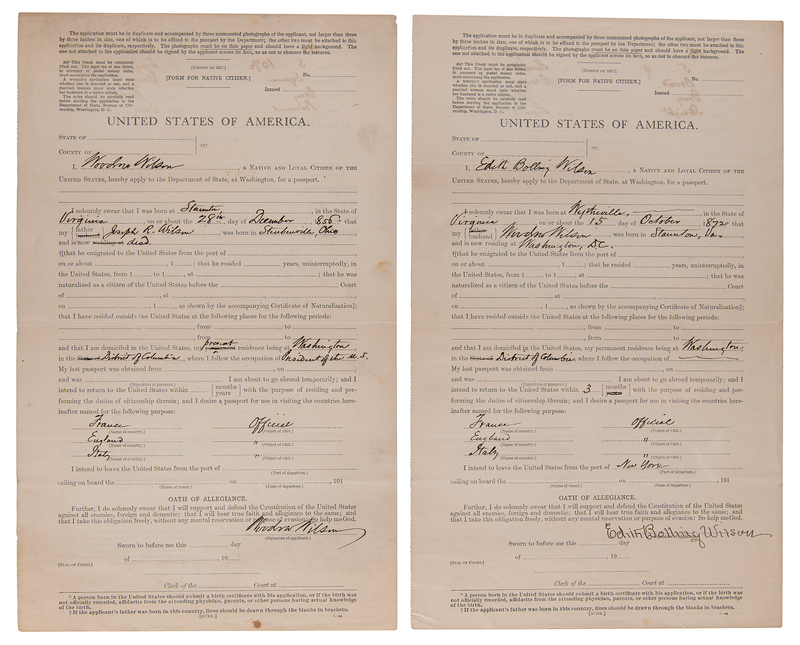 The application must be in duplicate and accompanied by three unmounted photographs of the applicant, not larger than three
by three inches in size, one of which is to be affixed to the passport by the Department; the other two must be attached to this
application and its duplicate, respectively. The photographs must be on thin paper and should have a light background. The
one not attached to the application should be signed by the applicant across its face, so as not to obscure the features.
This blank must be completely
filled out. The legal fee of one dollar,
in currency or postal money order,
must accompany the application.
A woman's application must state
whether she is married or not, and a
married woman must state whether
her husband is a native citizen.
The rules should be carefully read
before mailing the application to the
Department of State, Bureau of Citi-
zenship, Washington, D. C.
[FORM FOR NATIVE CITIZEN.]
No.
Issued
UNITED STATES OF AMERICA.
STATE OF
COUNTY OF
I, Woodrow Wilson, a NATIVE AND LOYAL CITIZEN OF THE
UNITED STATES, hereby apply to the Department of State, at Washington, for a passport.
I solemnly swear that I was born at Staunton, in the State of
Virginia, on or about the 28th day of December, 1856; that
my father husband Joseph R. Wilson was born in Steubenville, Ohio
and is now residing at dead.
[that he emigrated to the United States from the port of
on or about, 1; that he resided years, uninterruptedly, in
the United States, from 1 to 1, at; that he was
naturalized as a citizen of the United States before the Court
of, at,
on, 1, as shown by the accompanying Certificate of Naturalization];
that I have resided outside the United States at the following places for the following periods:
, from to
, from to
and that I am domiciled in the United States, my present residence being at Washington
in the State of District of Columbia, where I follow the occupation of President of the U.S.
My last passport was obtained from, on
and was I am about to go abroad temporarily; and I
(Disposition of passport.)
intend to return to the United States within months years with the purpose of residing and per-
forming the duties of citizenship therein; and I desire a passport for use in visiting the countries here-
inafter named for the following purpose:
France Official
(Name of country.) (Object of visit.)
England "
(Name of country.) (Object of visit.)
Italy "
(Name of country.) (Object of visit.)
I intend to leave the United States from the port of
(Port of departure.)
sailing on board the on, 191
(Name of vessel.) (Date of departure.)
OATH OF ALLEGIANCE.
Further, I do solemnly swear that I will support and defend the Constitution of the United States
against all enemies, foreign and domestic; that I will bear true faith and allegiance to the same; and
that I take this obligation freely, without any mental reservation or purpose of evasion: So help me God.
Woodrow Wilson
(Signature of applicant.)
Sworn to before me this day
of, 19
[SEAL OF COURT.]
Clerk of the Court at
* A person born in the United States should submit a birth certificate with his application, or if the birth was
not officially recorded, affidavits from the attending physician, parents, or other persons having actual knowledge
of the birth.
† If the applicant's father was born in this country, lines should be drawn through the blanks in brackets.
[OVER.]
The application must be in duplicate and accompanied by three unmounted photographs of the applicant, not larger than three
by three inches in size, one of which is to be affixed to the passport by the Department; the other two must be attached to this
application and its duplicate, respectively. The photographs must be on thin paper and should have a light background. The
one not attached to the application should be signed by the applicant across its face, so as not to obscure the features.
This blank must be completely
filled out. The legal fee of one dollar,
in currency or postal money order,
must accompany the application.
A woman's application must state
whether she is married or not, and a
married woman must state whether
her husband is a native citizen.
The rules should be carefully read
before mailing the application to the
Department of State, Bureau of Citi-
zenship, Washington, D. C.
[FORM FOR NATIVE CITIZEN.]
No.
Issued
UNITED STATES OF AMERICA.
STATE OF
COUNTY OF
I, Edith Bolling Wilson, a NATIVE AND LOYAL CITIZEN OF THE
UNITED STATES, hereby apply to the Department of State, at Washington, for a passport.
I solemnly swear that I was born at Wytheville, in the State of
Virginia, on or about the 15 day of October, 1872; that
my father husband Woodrow Wilson was born in Staunton, Va.
and is now residing at Washington, D.C.
[that he emigrated to the United States from the port of
on or about, 1; that he resided years, uninterruptedly, in
the United States, from 1 to 1, at; that he was
naturalized as a citizen of the United States before the Court
of, at,
on, 1, as shown by the accompanying Certificate of Naturalization];
that I have resided outside the United States at the following places for the following periods:
, from to
, from to
and that I am domiciled in the United States, my permanent residence being at Washington
in the State of District of Columbia, where I follow the occupation of
My last passport was obtained from, on
and was I am about to go abroad temporarily; and I
(Disposition of passport.)
intend to return to the United States within 3 months years with the purpose of residing and per-
forming the duties of citizenship therein; and I desire a passport for use in visiting the countries here-
inafter named for the following purpose:
France Official
(Name of country.) (Object of visit.)
England "
(Name of country.) (Object of visit.)
Italy "
(Name of country.) (Object of visit.)
I intend to leave the United States from the port of New York
(Port of departure.)
sailing on board the on, 191
(Name of vessel.) (Date of departure.)
OATH OF ALLEGIANCE.
Further, I do solemnly swear that I will support and defend the Constitution of the United States
against all enemies, foreign and domestic; that I will bear true faith and allegiance to the same; and
that I take this obligation freely, without any mental reservation or purpose of evasion: So help me God.
Edith Bolling Wilson
Sworn to before me this day
of, 19
[SEAL OF COURT.]
Clerk of the Court at
* A person born in the United States should submit a birth certificate with his application, or if the birth was
not officially recorded, affidavits from the attending physician, parents, or other persons having actual knowledge
of the birth.
† If the applicant's father was born in this country, lines should be drawn through the blanks in brackets.
[OVER.]